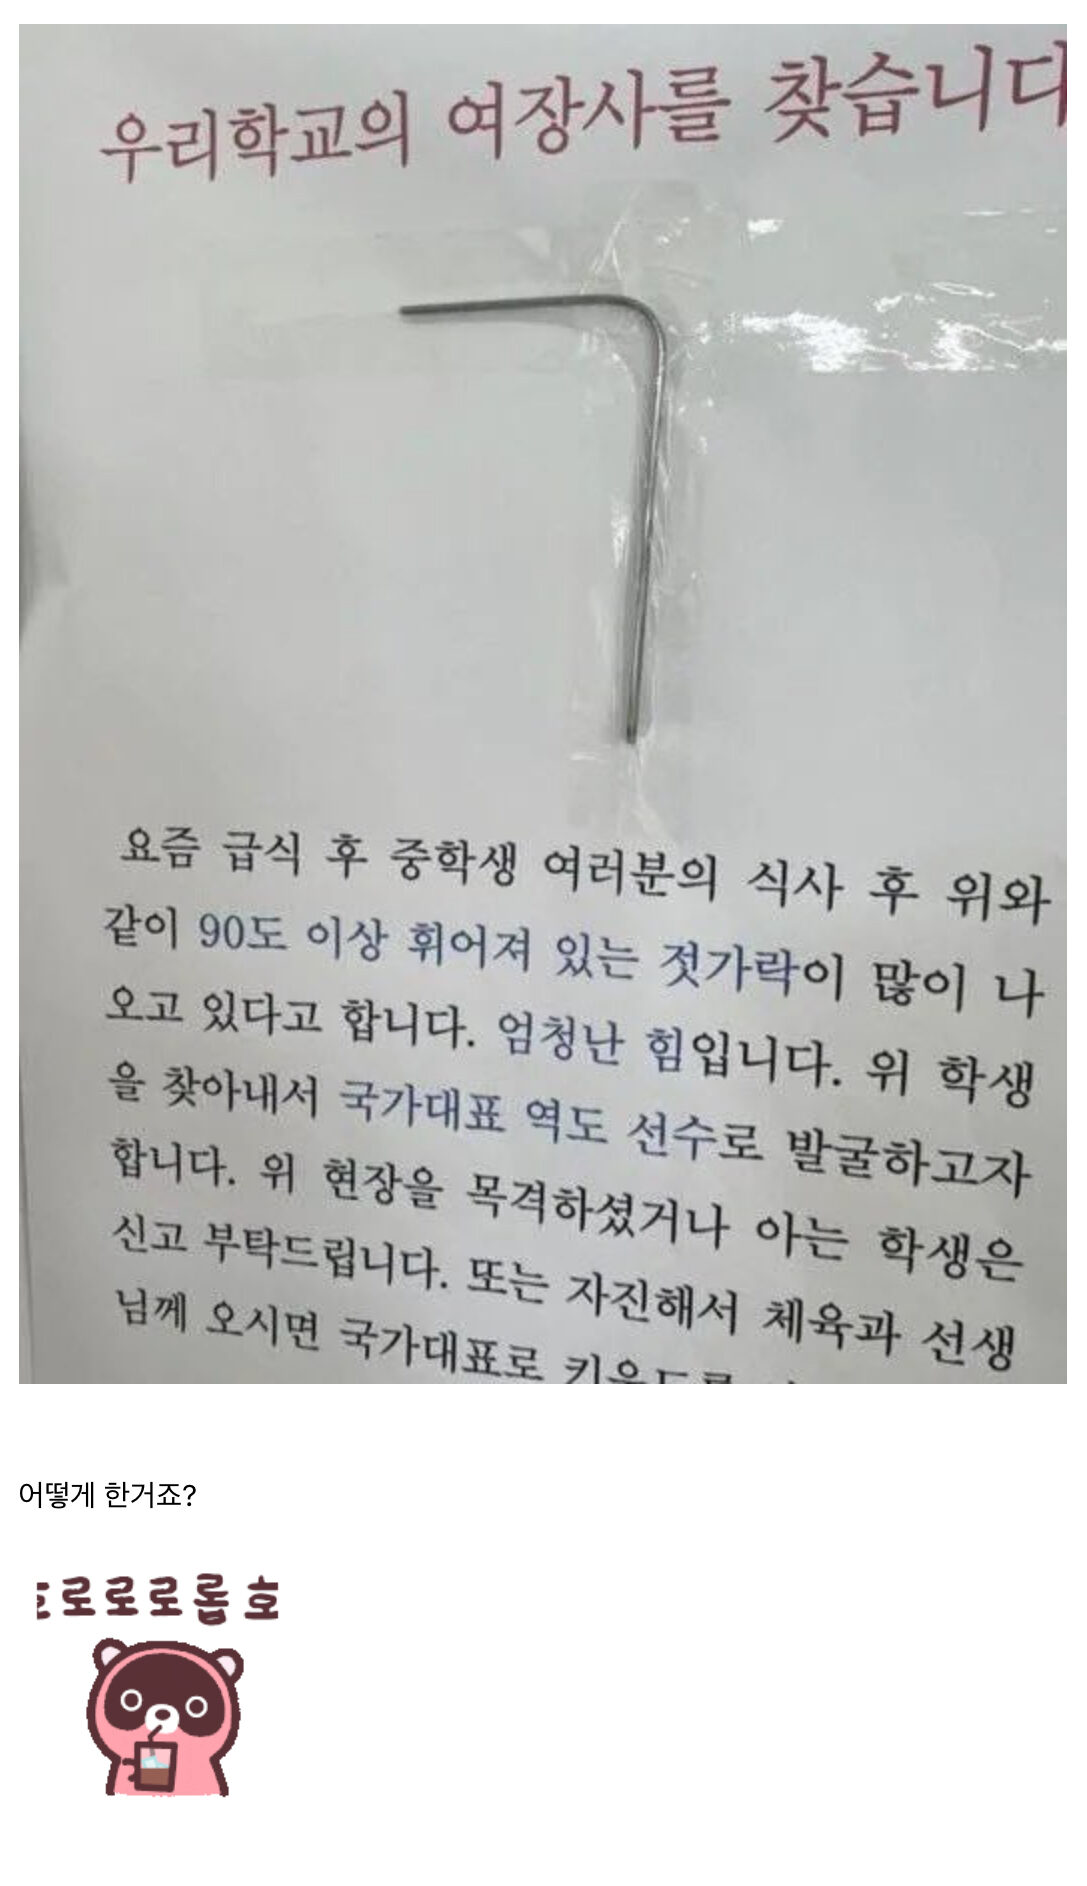 우리학교의 여장사를 찾습니다
요즘 급식 후 중학생 여러분의 식사 후 위와
같이 90도 이상 휘어져 있는 젓가락이 많이 나
오고 있다고 합니다. 엄청난 힘입니다. 위 학생
을 찾아내서 국가대표 역도 선수로 발굴하고자
합니다. 위 현장을 목격하셨거나 아는 학생은
신고 부탁드립니다. 또는 자진해서 체육과 선생
님께 오시면 국가대표로
어떻게 한거죠?
로로로롭 호